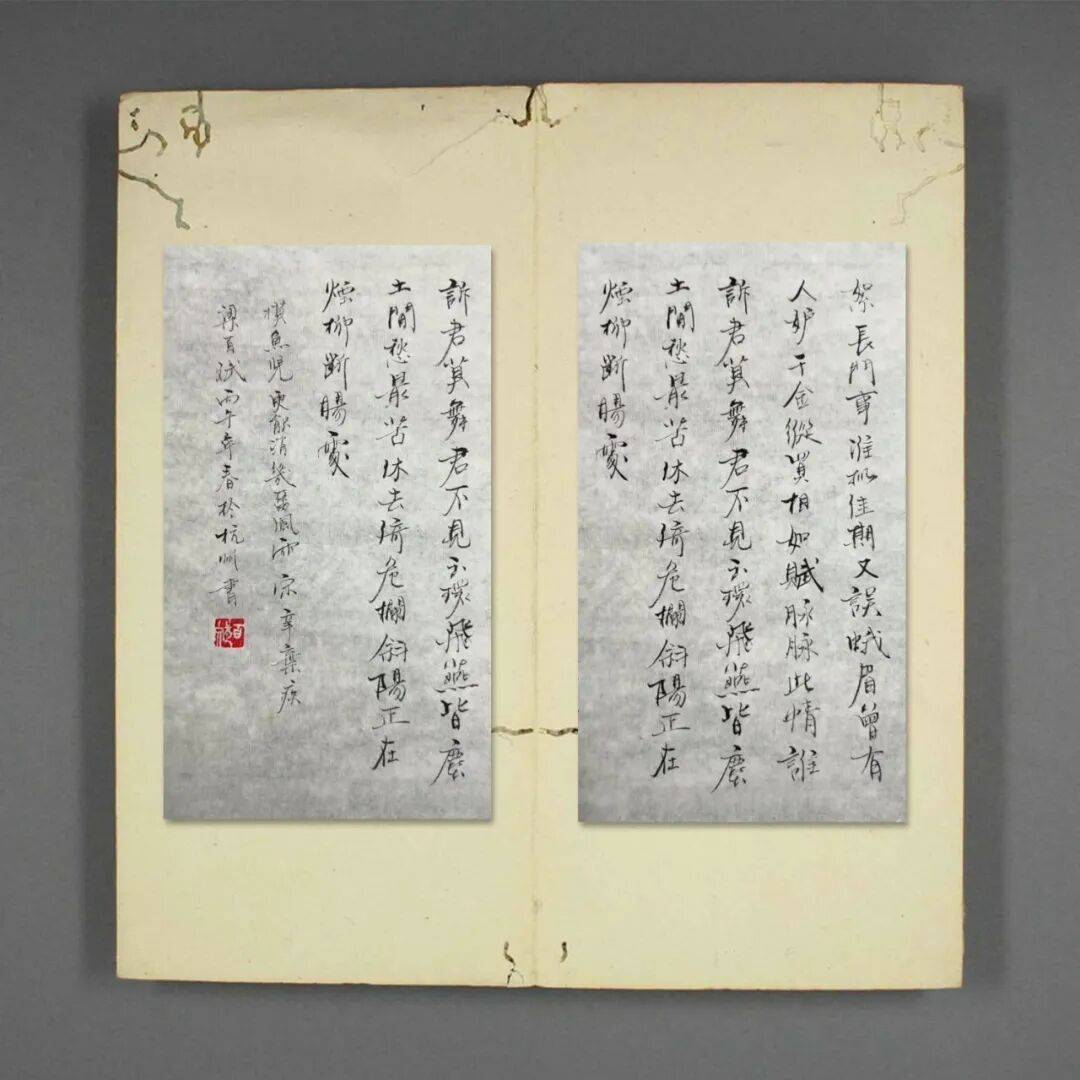 絮長門事准拟佳期又誤蛾眉曾有
人妒千金縱買相如賦脉脉此情誰
訴君莫舞君不見玉環飛燕皆塵
土閒愁最苦休去倚危欄斜陽正在
煙柳斷腸處
訴君莫舞君不見玉環飛燕皆塵
土閒愁最苦休去倚危欄斜陽正在
煙柳斷腸處
摸魚兒更能消幾番風雨宋辛棄疾
梁百丙午年春於杭州書